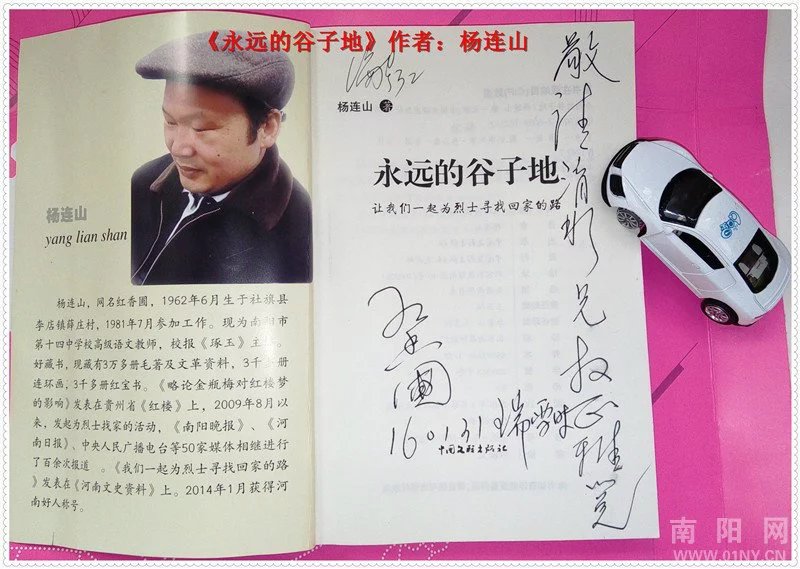 《永远的谷子地》作者：杨连山
杨连山
yang lian shan
杨连山，网名红香圃，1962年6月生于社旗县
李店镇薛庄村，1981年7月参加工作。现为南阳市
第十四中学校高级语文教师，校报《琢玉》主
好藏书，现藏有3万多册毛著及文革资料，3千多册
连环画，3千多册红宝书。《略论金瓶梅对红楼梦
的影响》发表在贵州省《红楼》上，2009年8月以
来，发起为烈士找家的活动，《南阳晚报》、《河
南日报》、中央人民广播电台等50家媒体相继进行
了百余次报道 。《我们一起为烈士寻找回家的路
》发表在《河南文史资料》上。2014年1月获得河
南好人称号。
杨连山 著
永远的谷子地
让我们一起为烈士寻找回家的路
兄 正雅览
160131瑞雪时
中国文联出版社
南阳网
WWW.01NY.CN